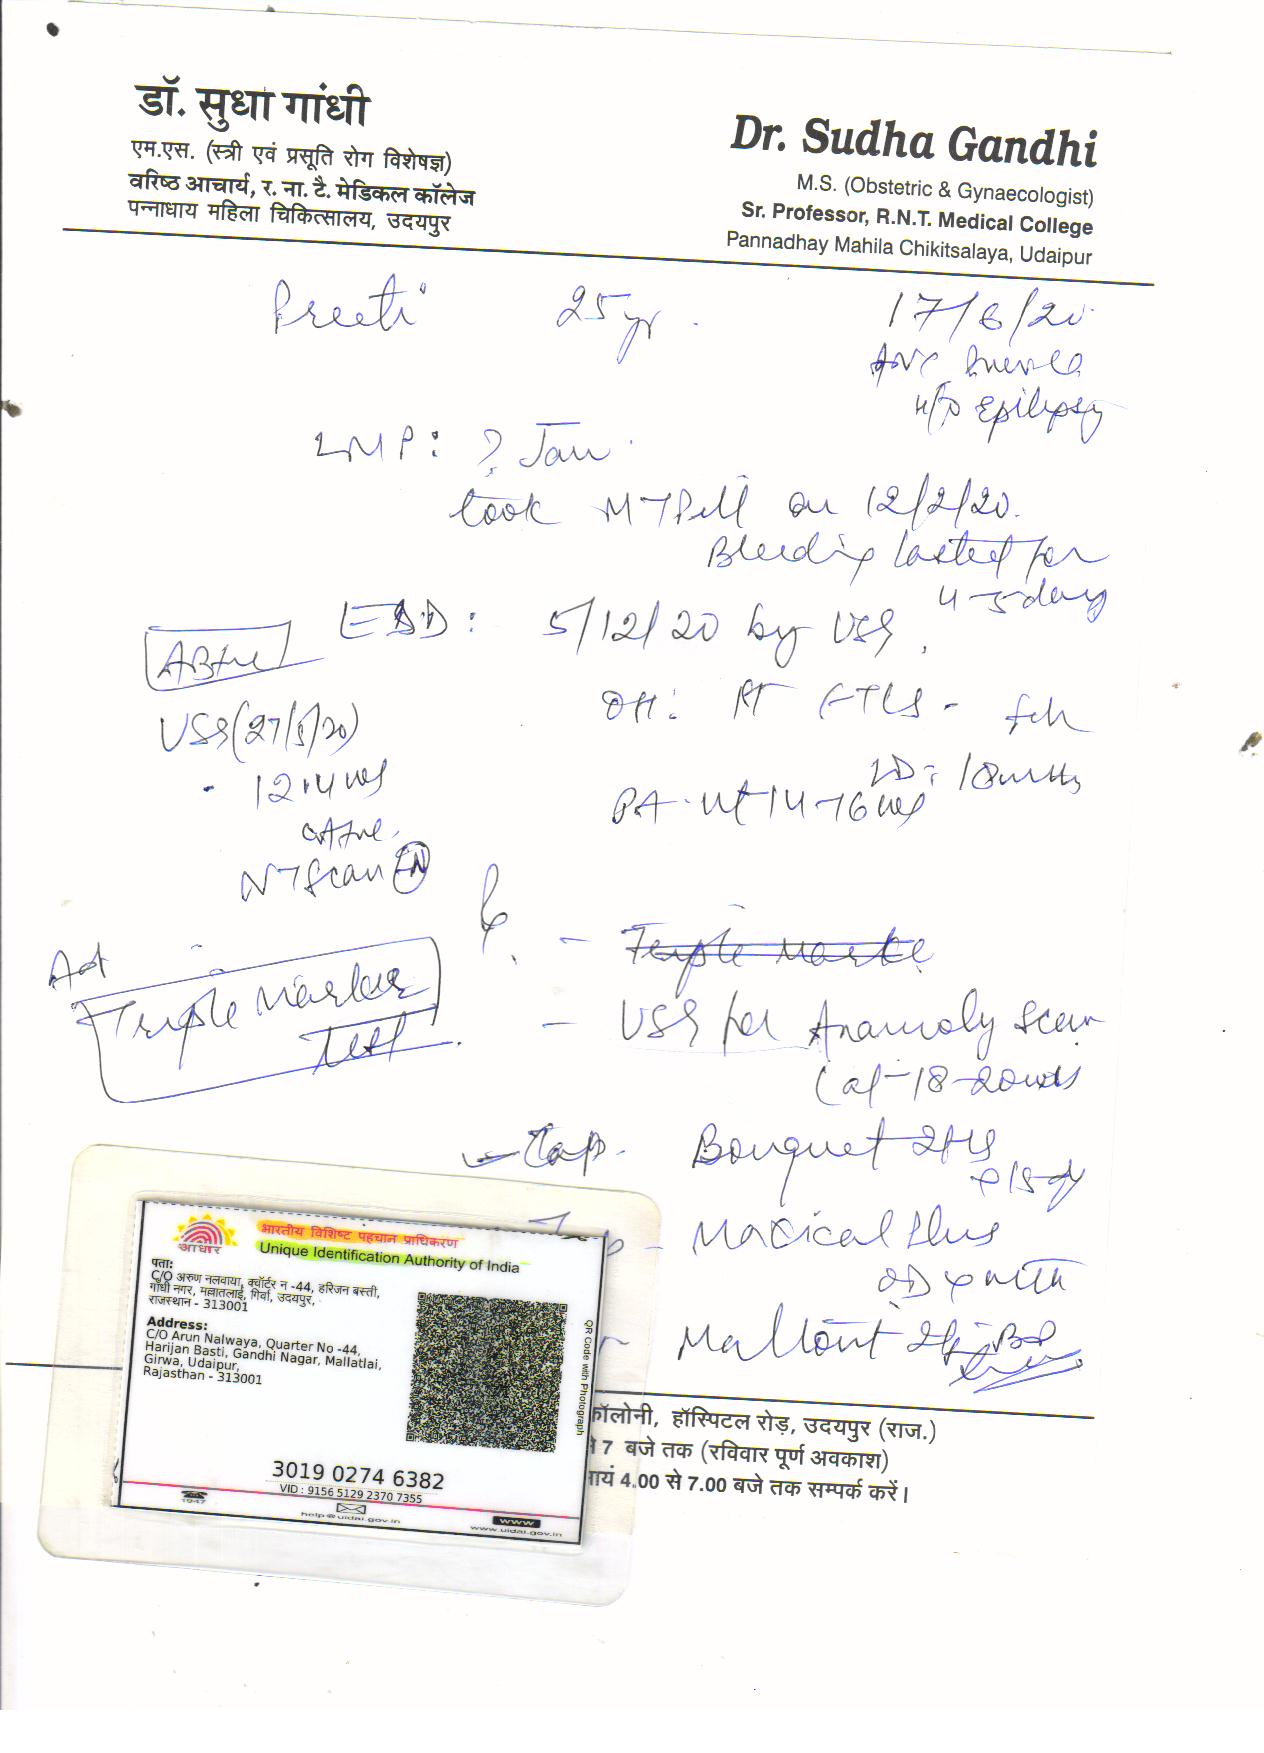 डॉ. सुधा गांधी
एम.एस. (स्त्री एवं प्रसूति रोग विशेषज्ञ)
वरिष्ठ आचार्य, र. ना. टै. मेडिकल कॉलेज
पन्नाधाय महिला चिकित्सालय, उदयपुर
Dr. Sudha Gandhi
M.S. (Obstetric & Gynaecologist)
Sr. Professor, R.N.T. Medical College
Pannadhay Mahila Chikitsalaya, Udaipur
Preeti 25 yr. 17/6/20
H/O Epilepsy
LMP: ? Jan
took MTPill on 12/2/20.
Bleeding lasted for
4-5 days
EDD: 5/12/20 by USG.
ABtve
USG (27/5/20)
- 12.4 wks
NT Scan (N)
OH: FTLS -
LD: 18 mths
PA - ut 14-16 wks
Adv
Triple Marker
Test
- Triple Marke
- USG for Anamoly Scan
(at 18-20 wks
Cap. Bouquet
Maxical Plus
OD
भारतीय विशिष्ट पहचान प्राधिकरण
Unique Identification Authority of India
आधार
पता:
C/O अरुण नलवाया, क्वॉर्टर न -44, हरिजन बस्ती,
गाँधी नगर, मल्लातलाई, गिर्वा, उदयपुर,
राजस्थान - 313001
Address:
C/O Arun Nalwaya, Quarter No -44,
Harijan Basti, Gandhi Nagar, Mallatlai,
Girwa, Udaipur,
Rajasthan - 313001
QR Code with Photograph
3019 0274 6382
VID : 9156 5129 2370 7355
1947
help@uidai.gov.in
www
www.uidai.gov.in
कॉलोनी, हॉस्पिटल रोड़, उदयपुर (राज.)
7 बजे तक (रविवार पूर्ण अवकाश)
4.00 से 7.00 बजे तक सम्पर्क करें।